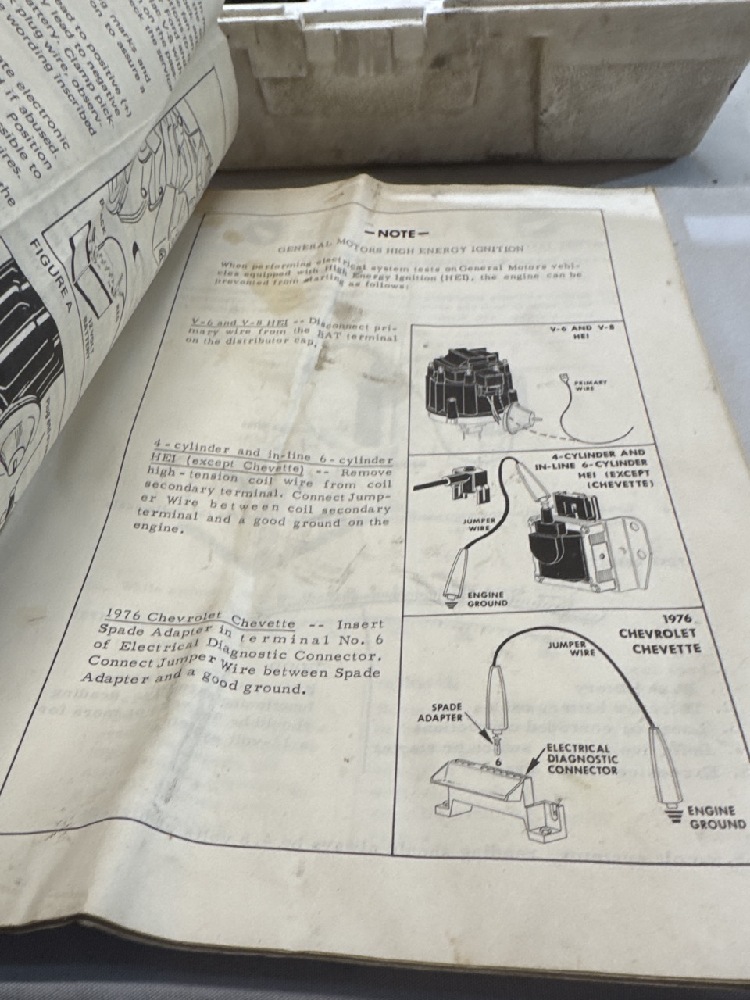 marks and
on to assure a
ead to positive (+)
lead to negative
battery. Clamp pick-
plug wire; observ-
wording inscribed
electronic
if abused.
Position
sible to
ires.
the
FIGURE A
-NOTE-
GENERAL MOTORS HIGH ENERGY IGNITION
When performing electrical system tests on General Motors vehi-
cles equipped with High Energy Ignition (HEI), the engine can be
prevented from starting as follows:
V-6 and V-8 HEI -- Disconnect pri-
mary wire from the BAT terminal
on the distributor cap.
V-6 AND V-8
HEI
PRIMARY
WIRE
4-cylinder and in-line 6-cylinder
HEI (except Chevette) -- Remove
high-tension coil wire from coil
secondary terminal. Connect Jump-
er Wire between coil secondary
terminal and a good ground on the
engine.
4-CYLINDER AND
IN-LINE 6-CYLINDER
HEI (EXCEPT
(CHEVETTE)
JUMPER
WIRE
ENGINE
GROUND
1976 Chevrolet Chevette -- Insert
Spade Adapter in terminal No. 6
of Electrical Diagnostic Connector.
Connect Jumper Wire between Spade
Adapter and a good ground.
1976
CHEVROLET
CHEVETTE
JUMPER
WIRE
SPADE
ADAPTER
6
ELECTRICAL
DIAGNOSTIC
CONNECTOR
ENGINE
GROUND